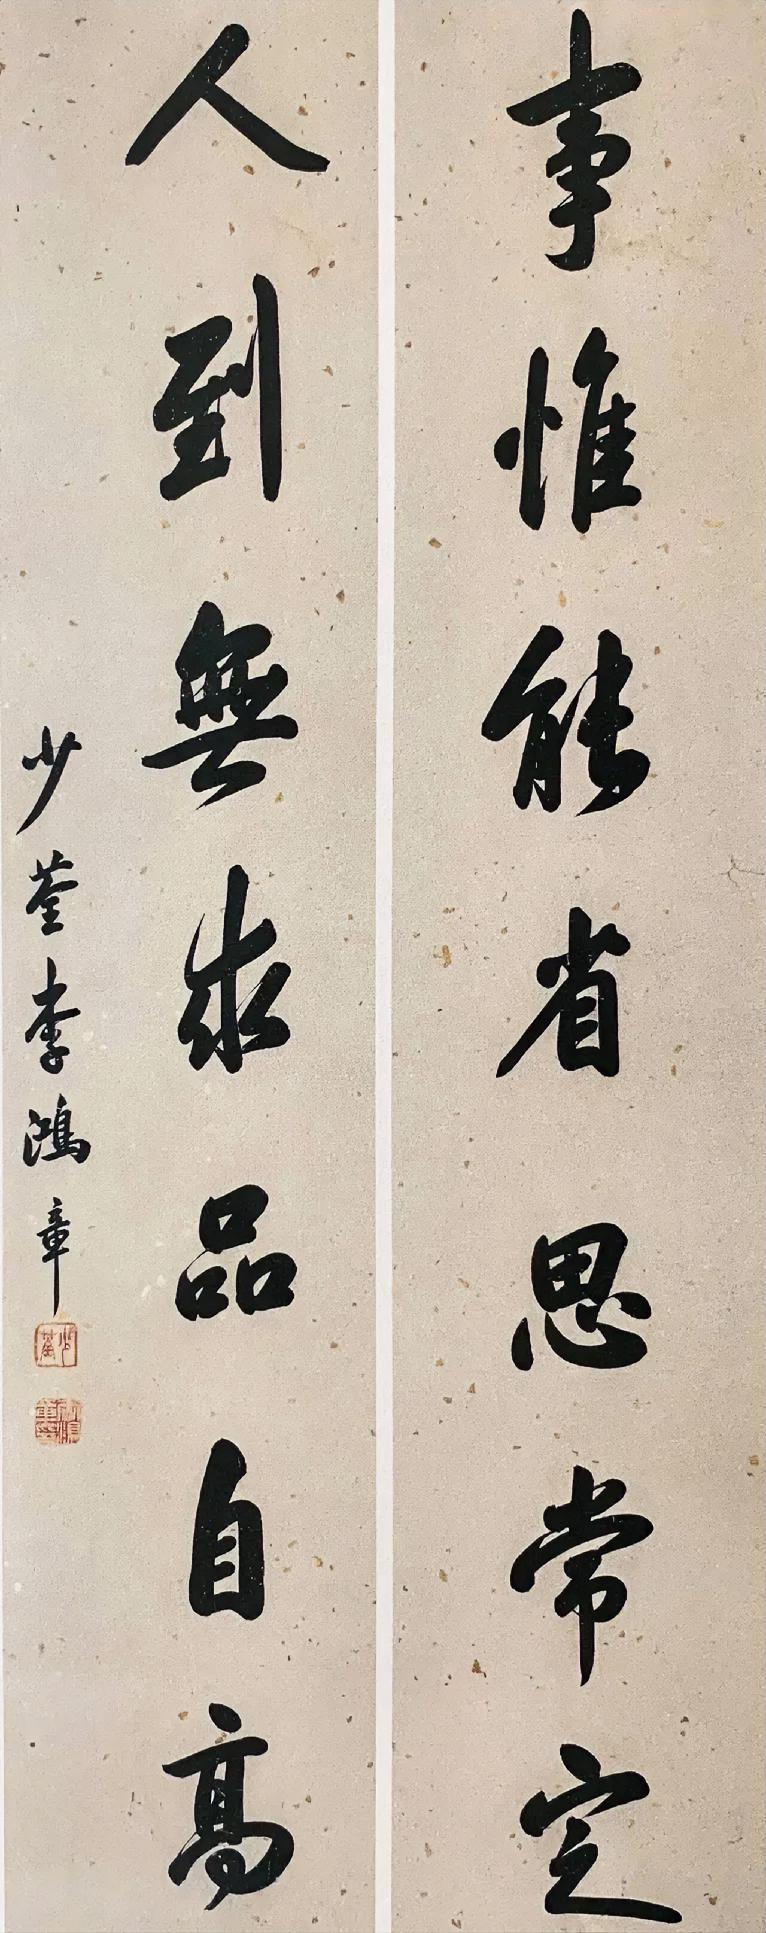 事惟能省思常定
人到無求品自高
少荃李鴻章
少荃